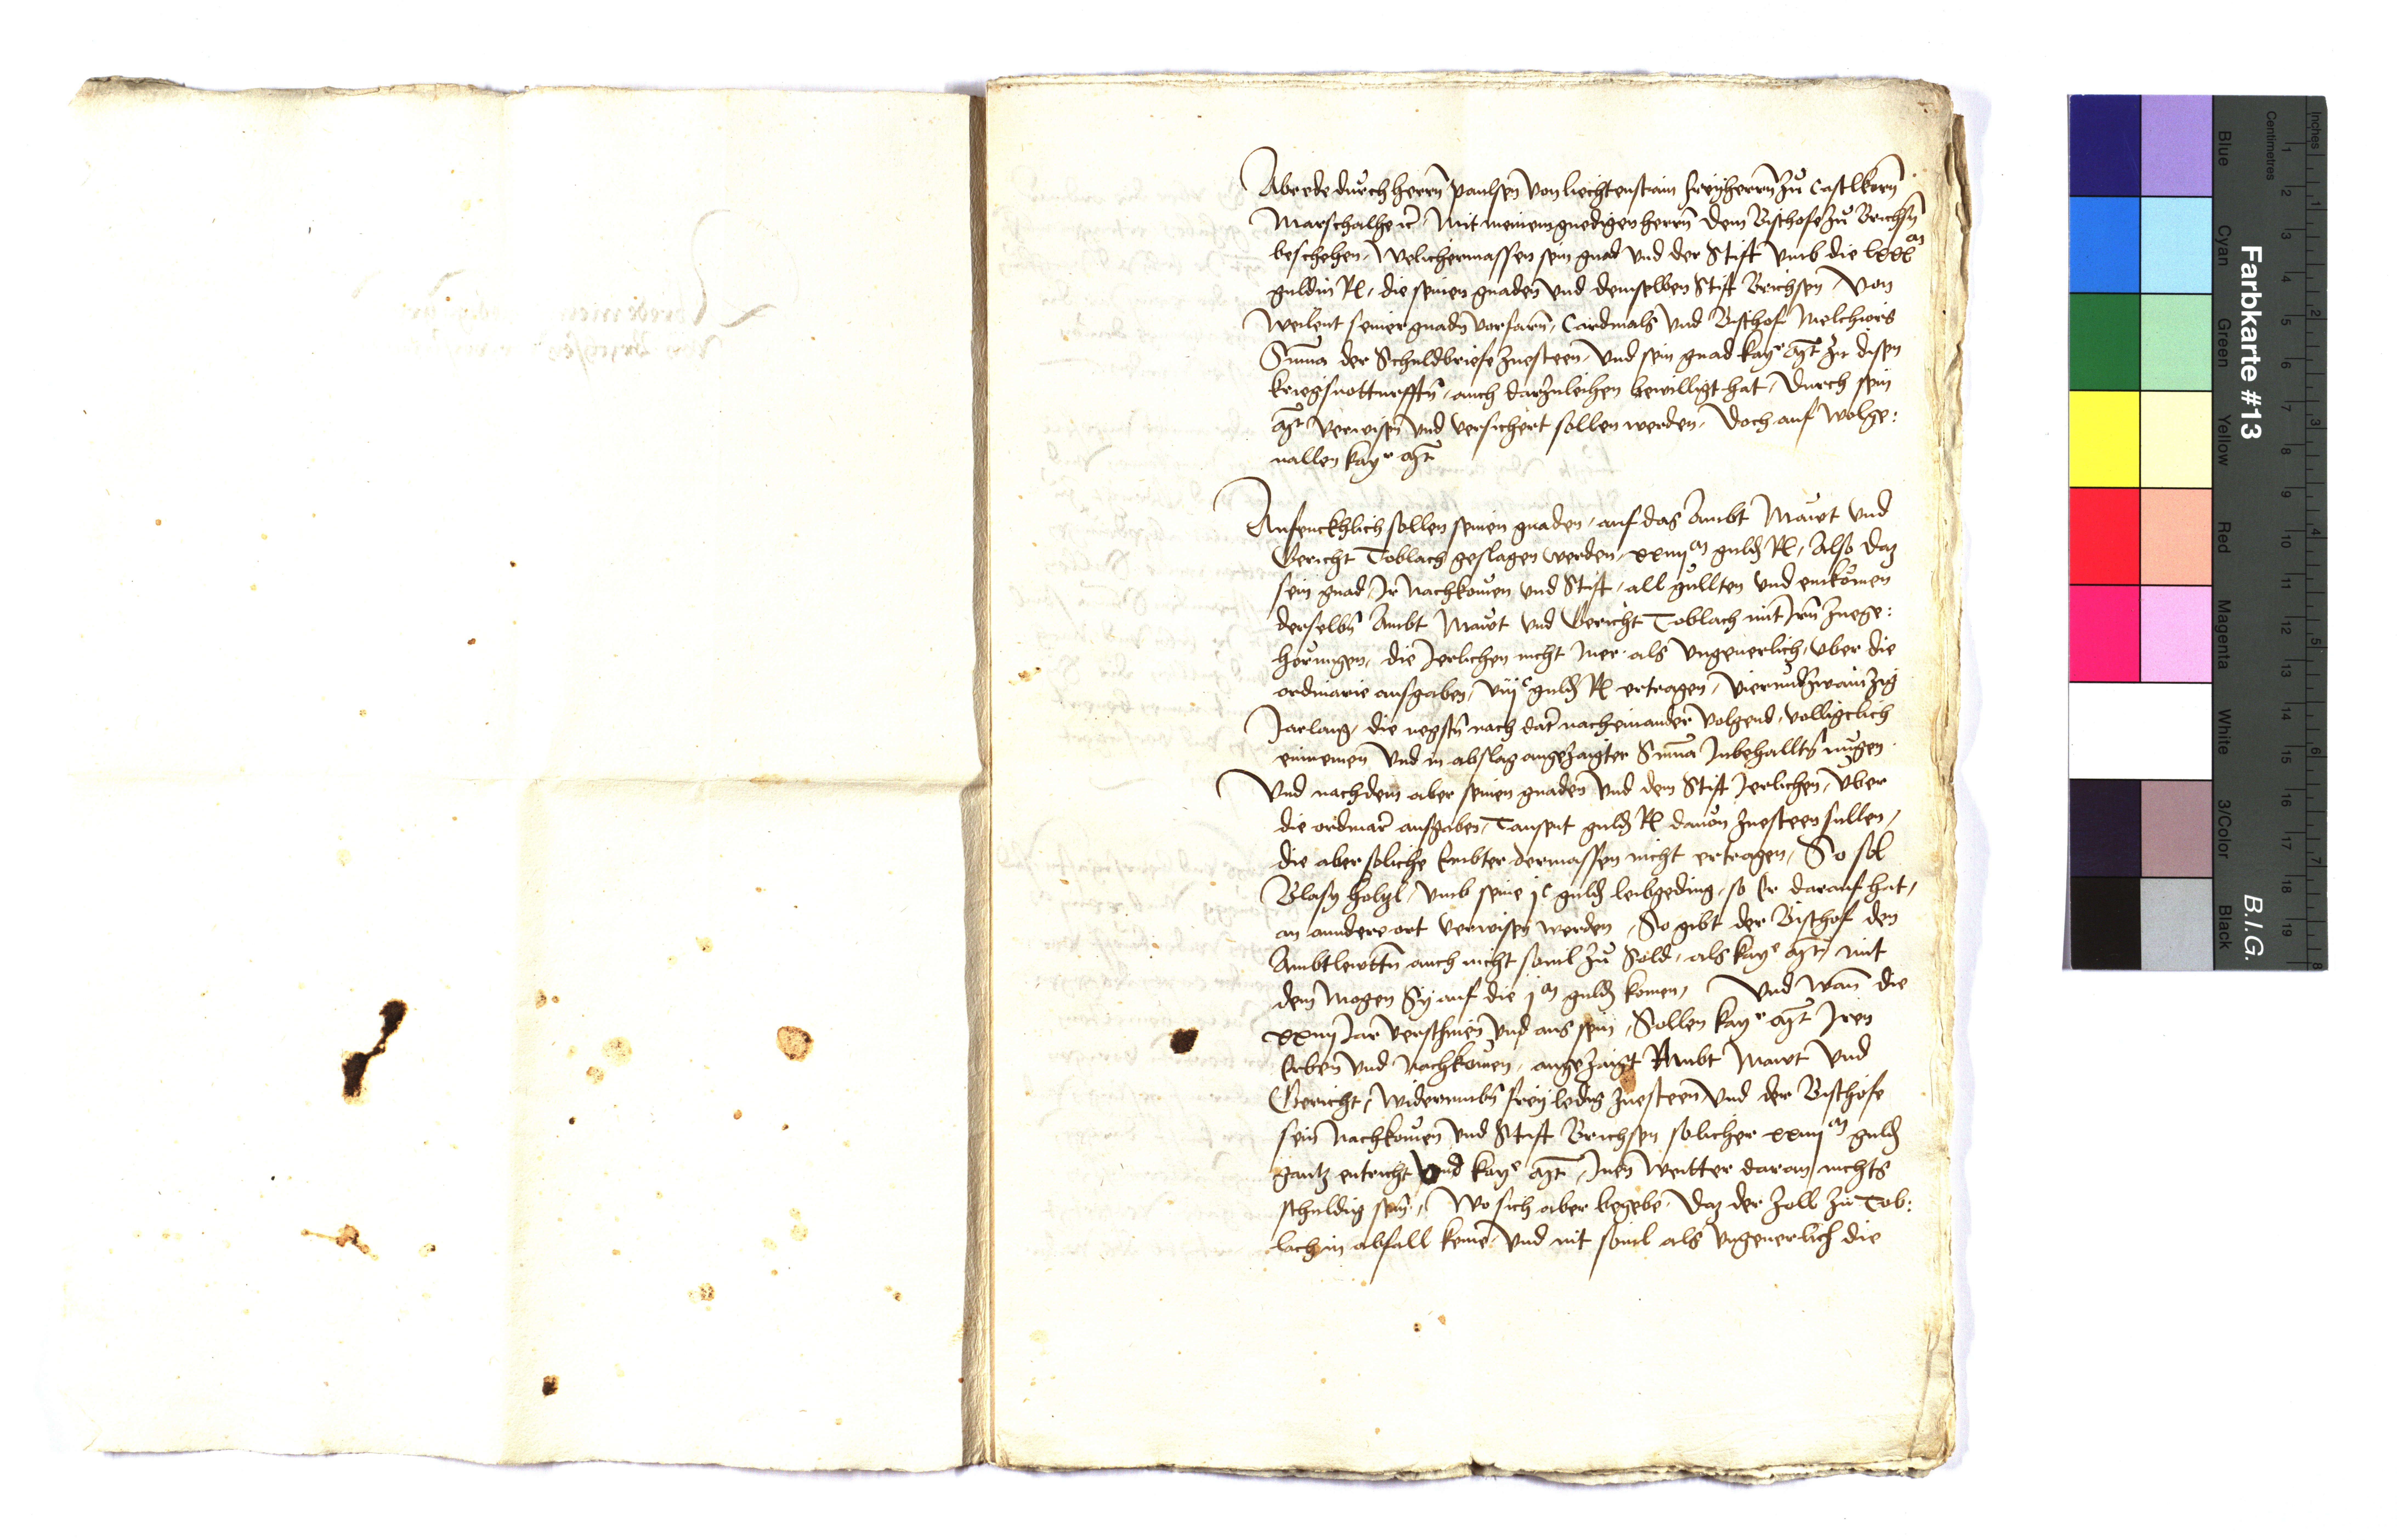 Abrede durch herrn Paulsen von Liechtenstain freyherrn zu Castlkorn
Marschalhe rc. Mit meinem gnedigen herrn dem Bischofe zu Brichsn
beschehen, Welichermassen sein gnad vnd der Stift vmb die lxxx m
guldin R, die seinen gnaden vnd demselben Stift Brichsen, von
weilent seiner gnadn vorfarn, Cardinals vnd Bischof Melchiors
Suma der Schuldbriefe zuesteen, vnd sein gnad kay r Mt zu disen
kriegsnotturfftn, auch darzuleihen bewilligt hat, durch sein
Mt verwisen vnd versichert sollen werden, doch auf wolge:
uallen kay r Mt
Anfenckhlich sollen seinen gnaden, auf das Ambt Mawt vnd
Gericht Toblach geslagen werden, xxiiij m guld R, Also daz
sein gnad, Ir Nachkomen vnd Stift, all gullten vnd einkomen
derselbn Ambt Mawt vnd Gericht Toblach mit Irn zuege:
horungen, die Jerlichen nicht mer als vngeuerlich, vber die
ordinarie ausgaben, viij c guld R ertragen, vierundzwainzig
Jar lang, die negstn nach dat nacheinander volgend, volligclich
einnemen vnd in abslag angezaigter Suma Inbehalltn mugen.
Vnd nachdem aber seinen gnaden vnd dem Stift Jerlichen, vber
die ordinari ausgaben, Tausent guld R dauon zuesteen sullen,
die aber soliche Embter dermassen nicht ertragen, So sol
Blasy Holtzl, vmb seine j c guld leibgeding, so Er darauf hat,
an anndere ort verwisen werden, So gibt der Bischof den
Ambtlewttn auch nicht souil zu Sold, als kay e Mt, mit
dem mogen Sy auf die j m guld komen, Vnd wann die
xxiiij Jar verschinen vnd aus sein, Sollen kay r Mt Iren
Erben vnd Nachkomen, angezaigt Ambt Mawt vnd
Gericht, widerumbn frey ledig zuesteen vnd der Bischofe
sein Nachkomen vnd Stift Brichsen solicher xxiiij m guld
gantz entricht vnd kay e Mt, Inen weitter daran nichts
schuldig sein, Wo sich aber begebe, daz der Zoll zu Tob:
lach in abfall keme vnd nit souil als vngeuerlich die
Farbkarte #13
B.I.G.
Inches
Centimetres
1 2 3 4 5 6 7 8
1 2 3 4 5 6 7 8 9 10 11 12 13 14 15 16 17 18 19
Blue
Cyan
Green
Yellow
Red
Magenta
White
3/Color
Black